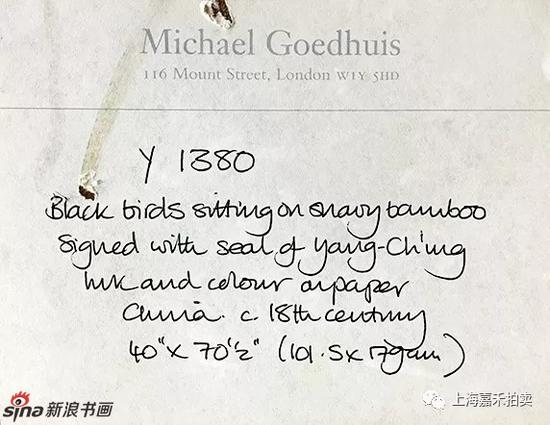 Michael Goedhuis
116 Mount Street, London W1Y 5HD
Y 1380
Black birds sitting on snowy bamboo
Signed with seal of Yang-Ch'ing
Ink and colour on paper
China. c. 18th century
40" x 70½" (101.5 x 179cm)
sina 新浪书画
上海嘉禾拍卖